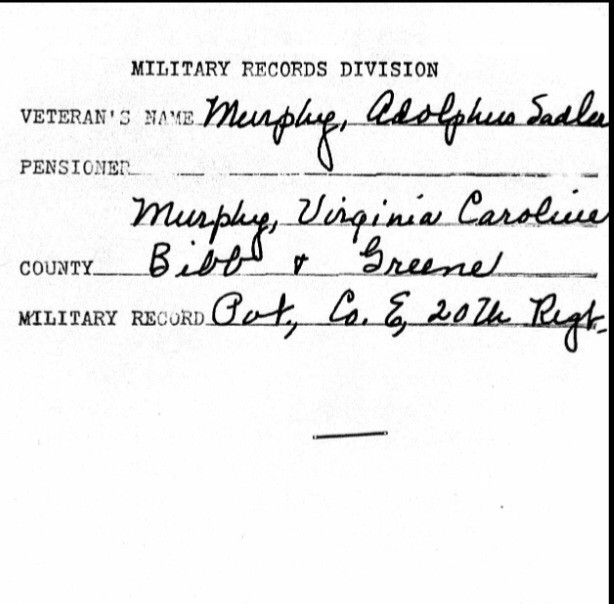 MILITARY RECORDS DIVISION
VETERAN'S NAME Murphy, Adolphus Sadler
PENSIONER
Murphy, Virginia Caroline
COUNTY Bibb & Greene
MILITARY RECORD Pvt, Co. E, 20th Regt.